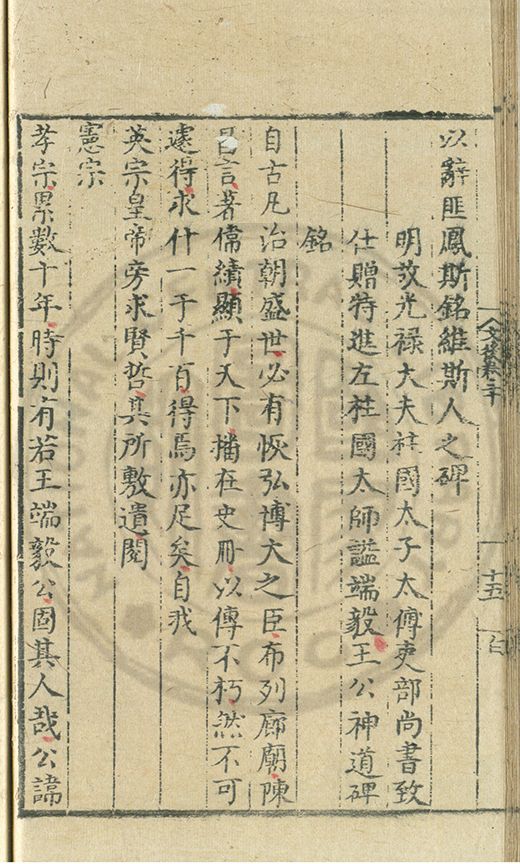 以辭匪鳳斯銘維斯人之碑
明故光禄大夫柱國太子太傅吏部尚書致
仕贈特進左柱國太師諡端毅王公神道碑
銘
自古凡治朝盛世必有恢弘博大之臣布列廊廟陳
言著儒績顯于天下播在史冊以傳不朽然不可
遽得求什一于千百得焉亦足矣自我
英宗皇帝旁求賢哲其所敷遺閱
憲宗
孝宗累數十年時則有若王端毅公固其人哉公諱
十五